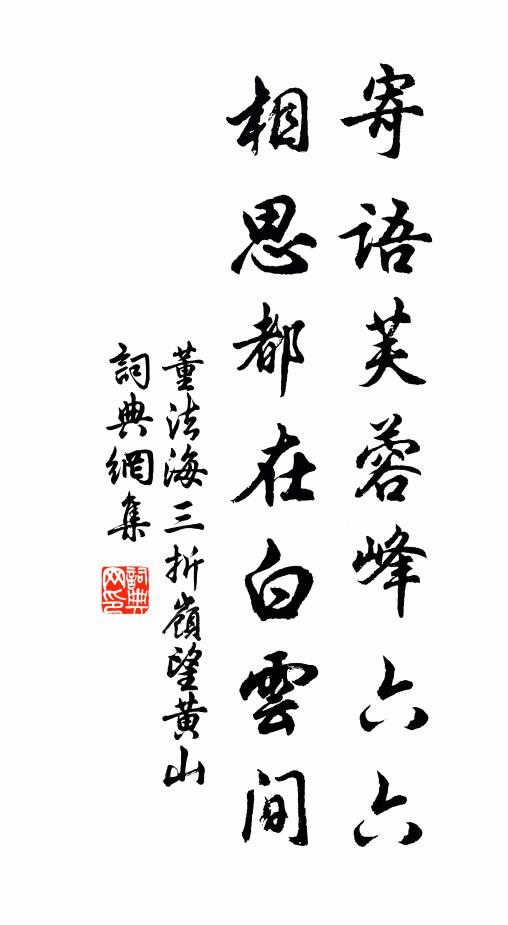 寄語芙蓉峰六六
相思都在白雲间
董法海三折嶺望黄山
詞典網集
詞典
网印